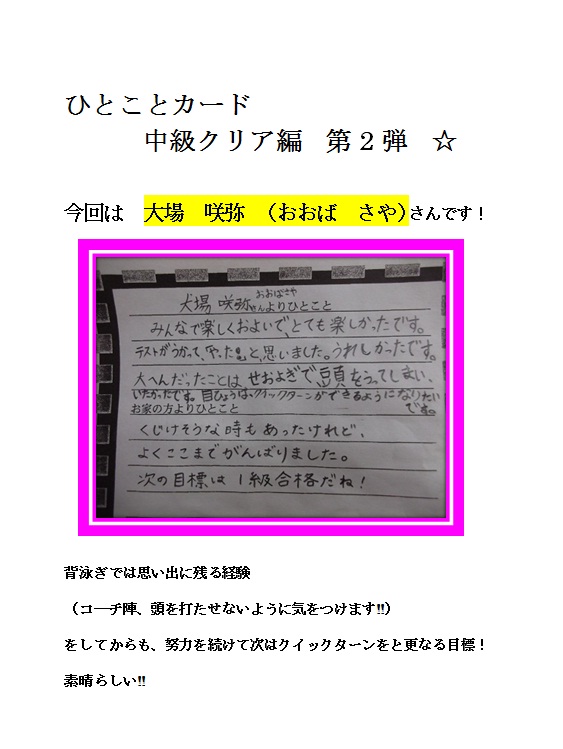 ひとことカード
中級クリア編　第２弾　☆
今回は　大場　咲弥　（おおば　さや）さんです！
おおばさや
大場 咲弥さんよりひとこと
みんなで楽しくおよいで、とても楽しかったです。
テストがうかって、やったと思いました。うれしかったです。
大へんだったことは、せおよぎで、頭をうってしまい、
いたかったです。目ひょうは、クイックターンができるようになりたい
です。
お家の方よりひとこと
くじけそうな時もあったけれど、
よくここまでがんばりました。
次の目標は１級合格だね！
背泳ぎでは思い出に残る経験
（コーチ陣、頭を打たせないように気をつけます!!）
をしてからも、努力を続けて次はクイックターンをと更なる目標！
素晴らしい!!